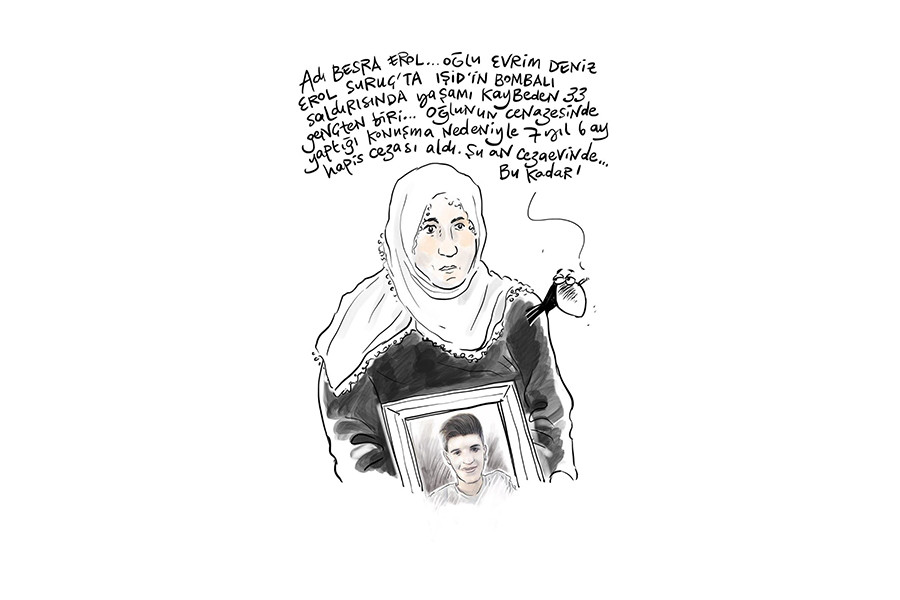 Adı BESRA EROL... OĞLU EVRİM DENİZ
EROL SURUÇ'TA IŞİD'İN BOMBALI
SALDIRISINDA YAŞAMI KAYBEDEN 33
GENÇTEN BİRİ... OĞLUNUN CENAZESİNDE
YAPTIĞI KONUŞMA NEDENİYLE 7 YIL 6 AY
HAPİS CEZASI ALDI. ŞU AN CEZAEVİNDE...
BU KADAR!